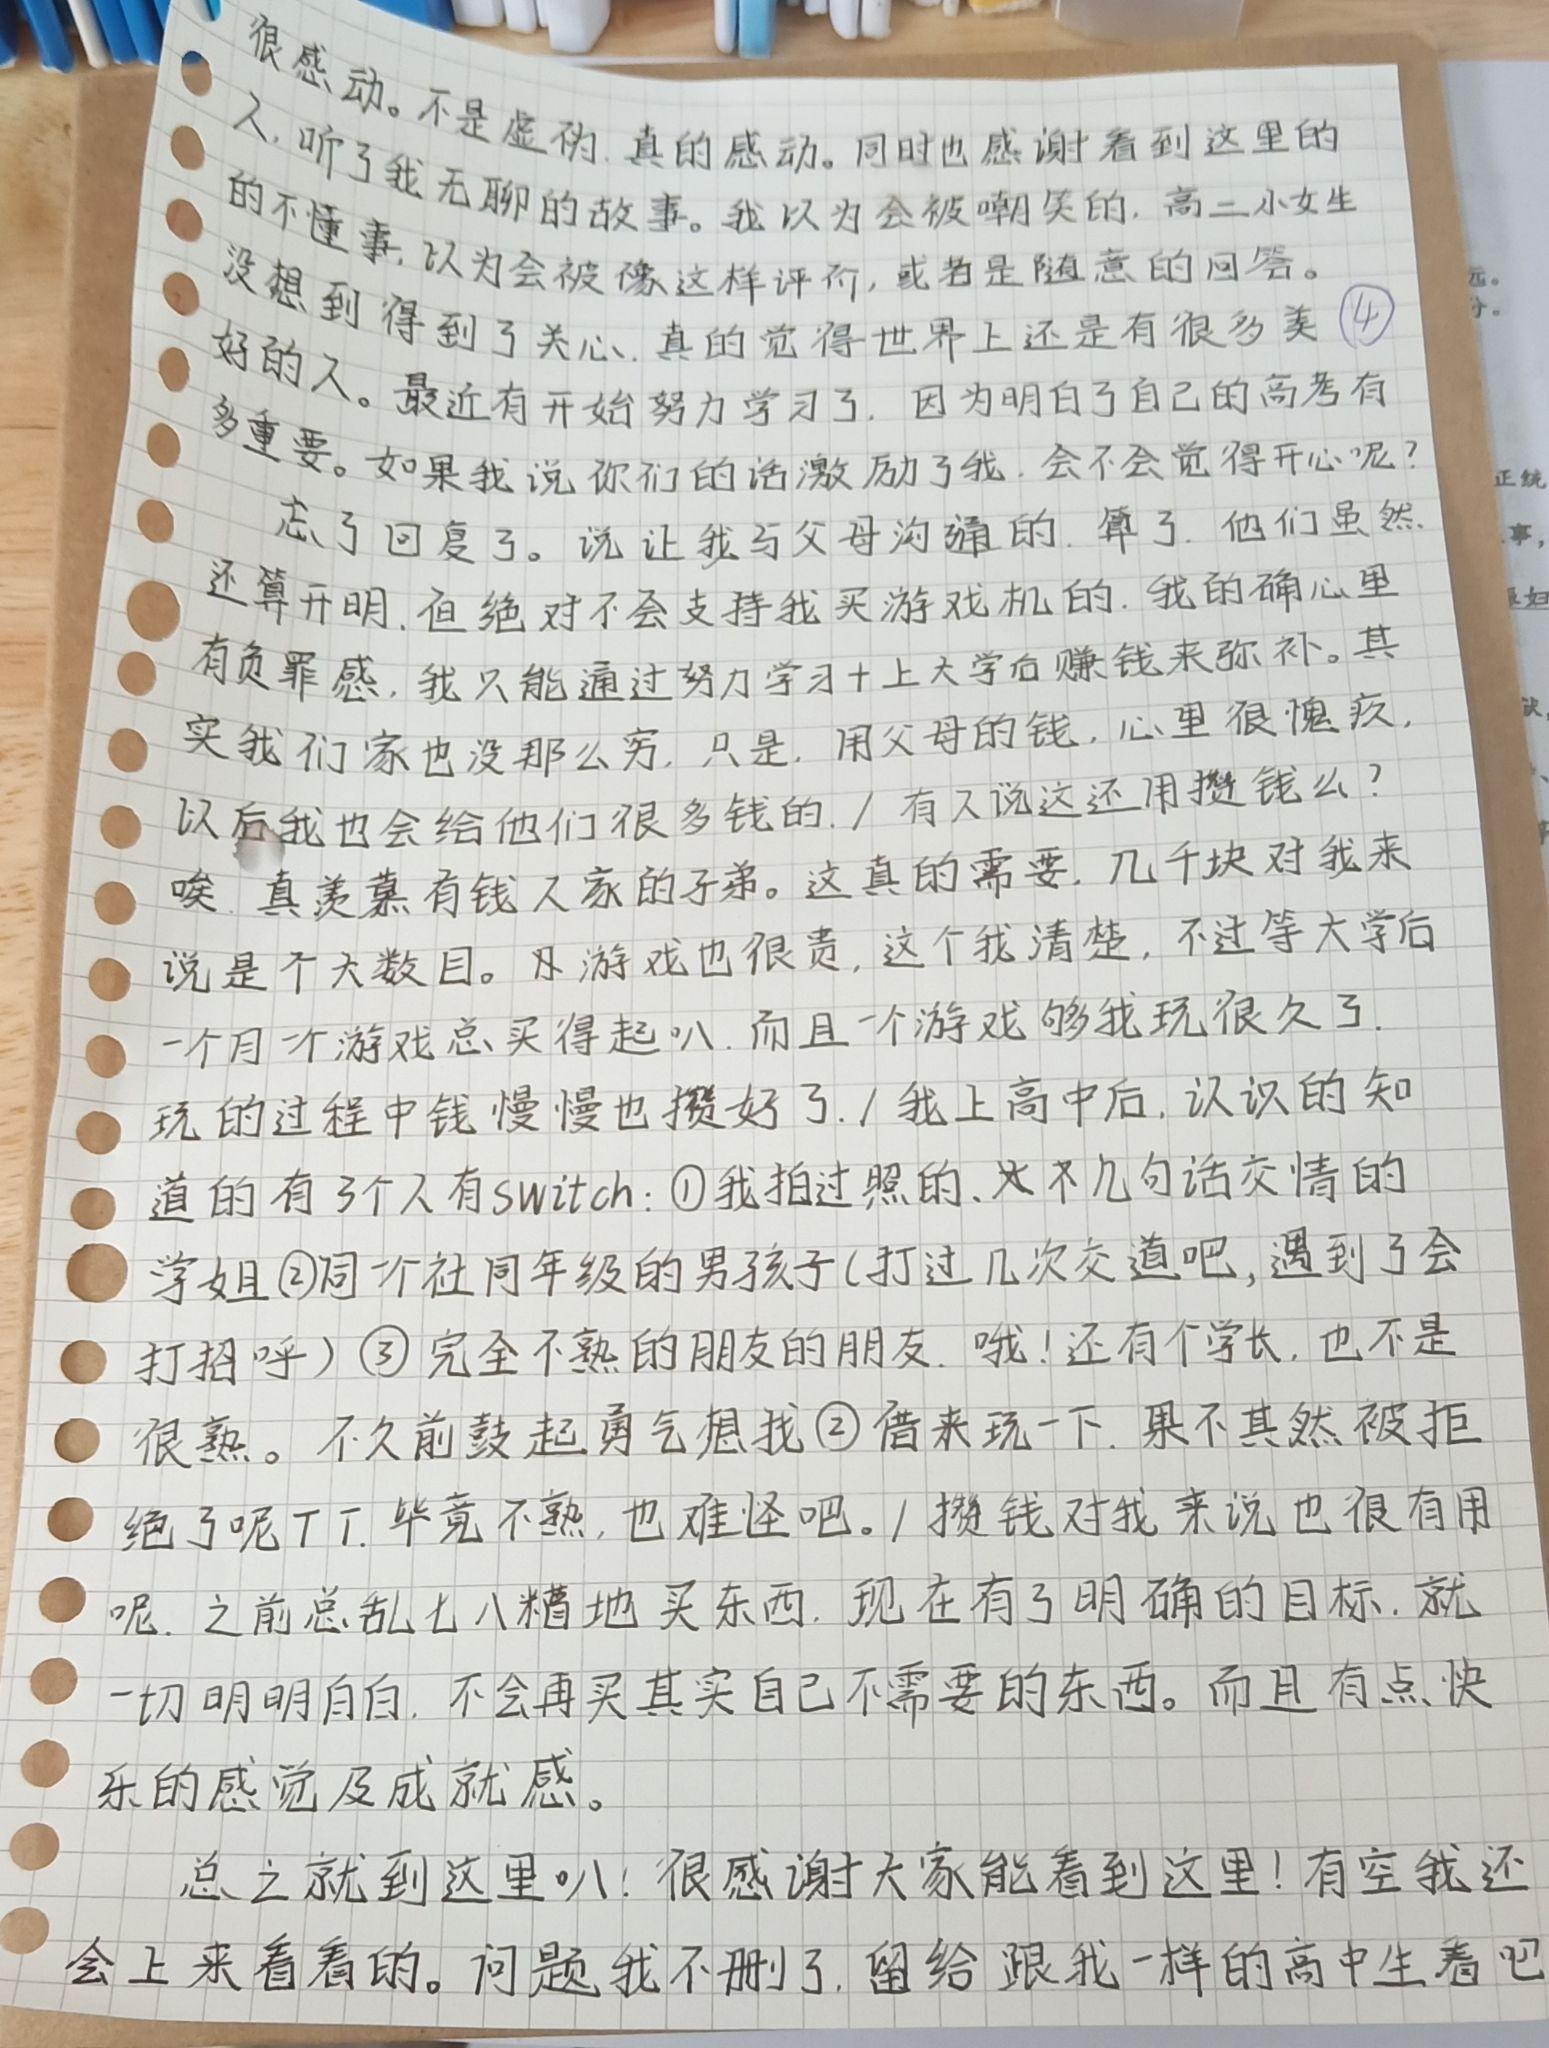 很感动。不是虚伪,真的感动。同时也感谢看到这里的
人,听了我无聊的故事。我以为会被嘲笑的,高二小女生
的不懂事,以为会被像这样评价,或者是随意的回答。
没想到得到了关心,真的觉得世界上还是有很多美 ④
好的人。最近有开始努力学习了,因为明白了自己的高考有
多重要。如果我说你们的话激励了我,会不会觉得开心呢?
忘了回复了。说让我与父母沟通的,算了,他们虽然
还算开明,但绝对不会支持我买游戏机的,我的确心里
有负罪感,我只能通过努力学习+上大学后赚钱来弥补。其
实我们家也没那么穷,只是,用父母的钱,心里很愧疚,
以后我也会给他们很多钱的./有人说这还用攒钱么?
唉,真羡慕有钱人家的子弟。这真的需要,几千块对我来
说是个大数目。及游戏也很贵,这个我清楚,不过等大学后
一个月一个游戏总买得起叭,而且一个游戏够我玩很久了.
玩的过程中钱慢慢也攒好了./我上高中后,认识的知
道的有3个人有switch:①我拍过照的、不几句话交情的
学姐②同一个社同年级的男孩子(打过几次交道吧,遇到了会
打招呼)③完全不熟的朋友的朋友.哦!还有个学长,也不是
很熟。不久前鼓起勇气想找②借来玩一下,果不其然被拒
绝了呢TT.毕竟不熟,也难怪吧。/攒钱对我来说也很有用
呢.之前总乱七八糟地买东西,现在有了明确的目标,就
一切明明白白,不会再买其实自己不需要的东西。而且有点快
乐的感觉及成就感。
总之就到这里叭!很感谢大家能看到这里!有空我还
会上来看看的。问题我不删了,留给跟我一样的高中生看吧
远。
分。
正统
事,